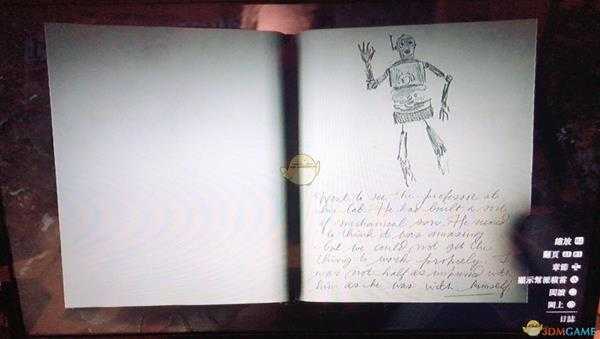 Went to see the professor at
his lab. He has built a sort
of mechanical son. He seems
to think it was amazing
but we could not get the
thing to work properly. I
was not half as impressed with
him as he was with himself
縮放
翻頁
章節
閱讀
闔上
日誌
3DMGAME